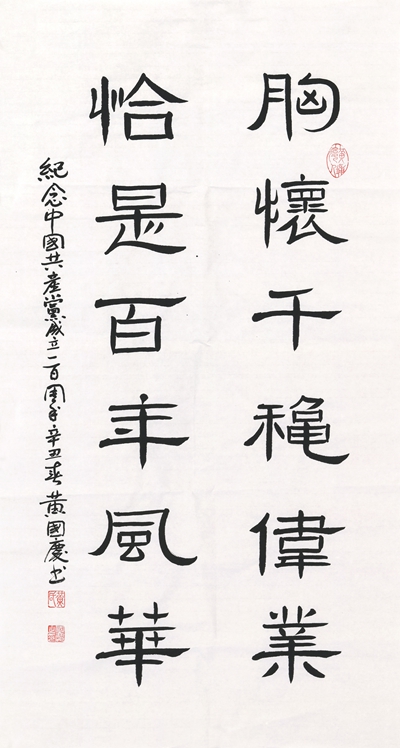 胸懷千穐偉業
恰是百年風華
紀念中國共產黨成立一百周年辛丑春黃國慶书